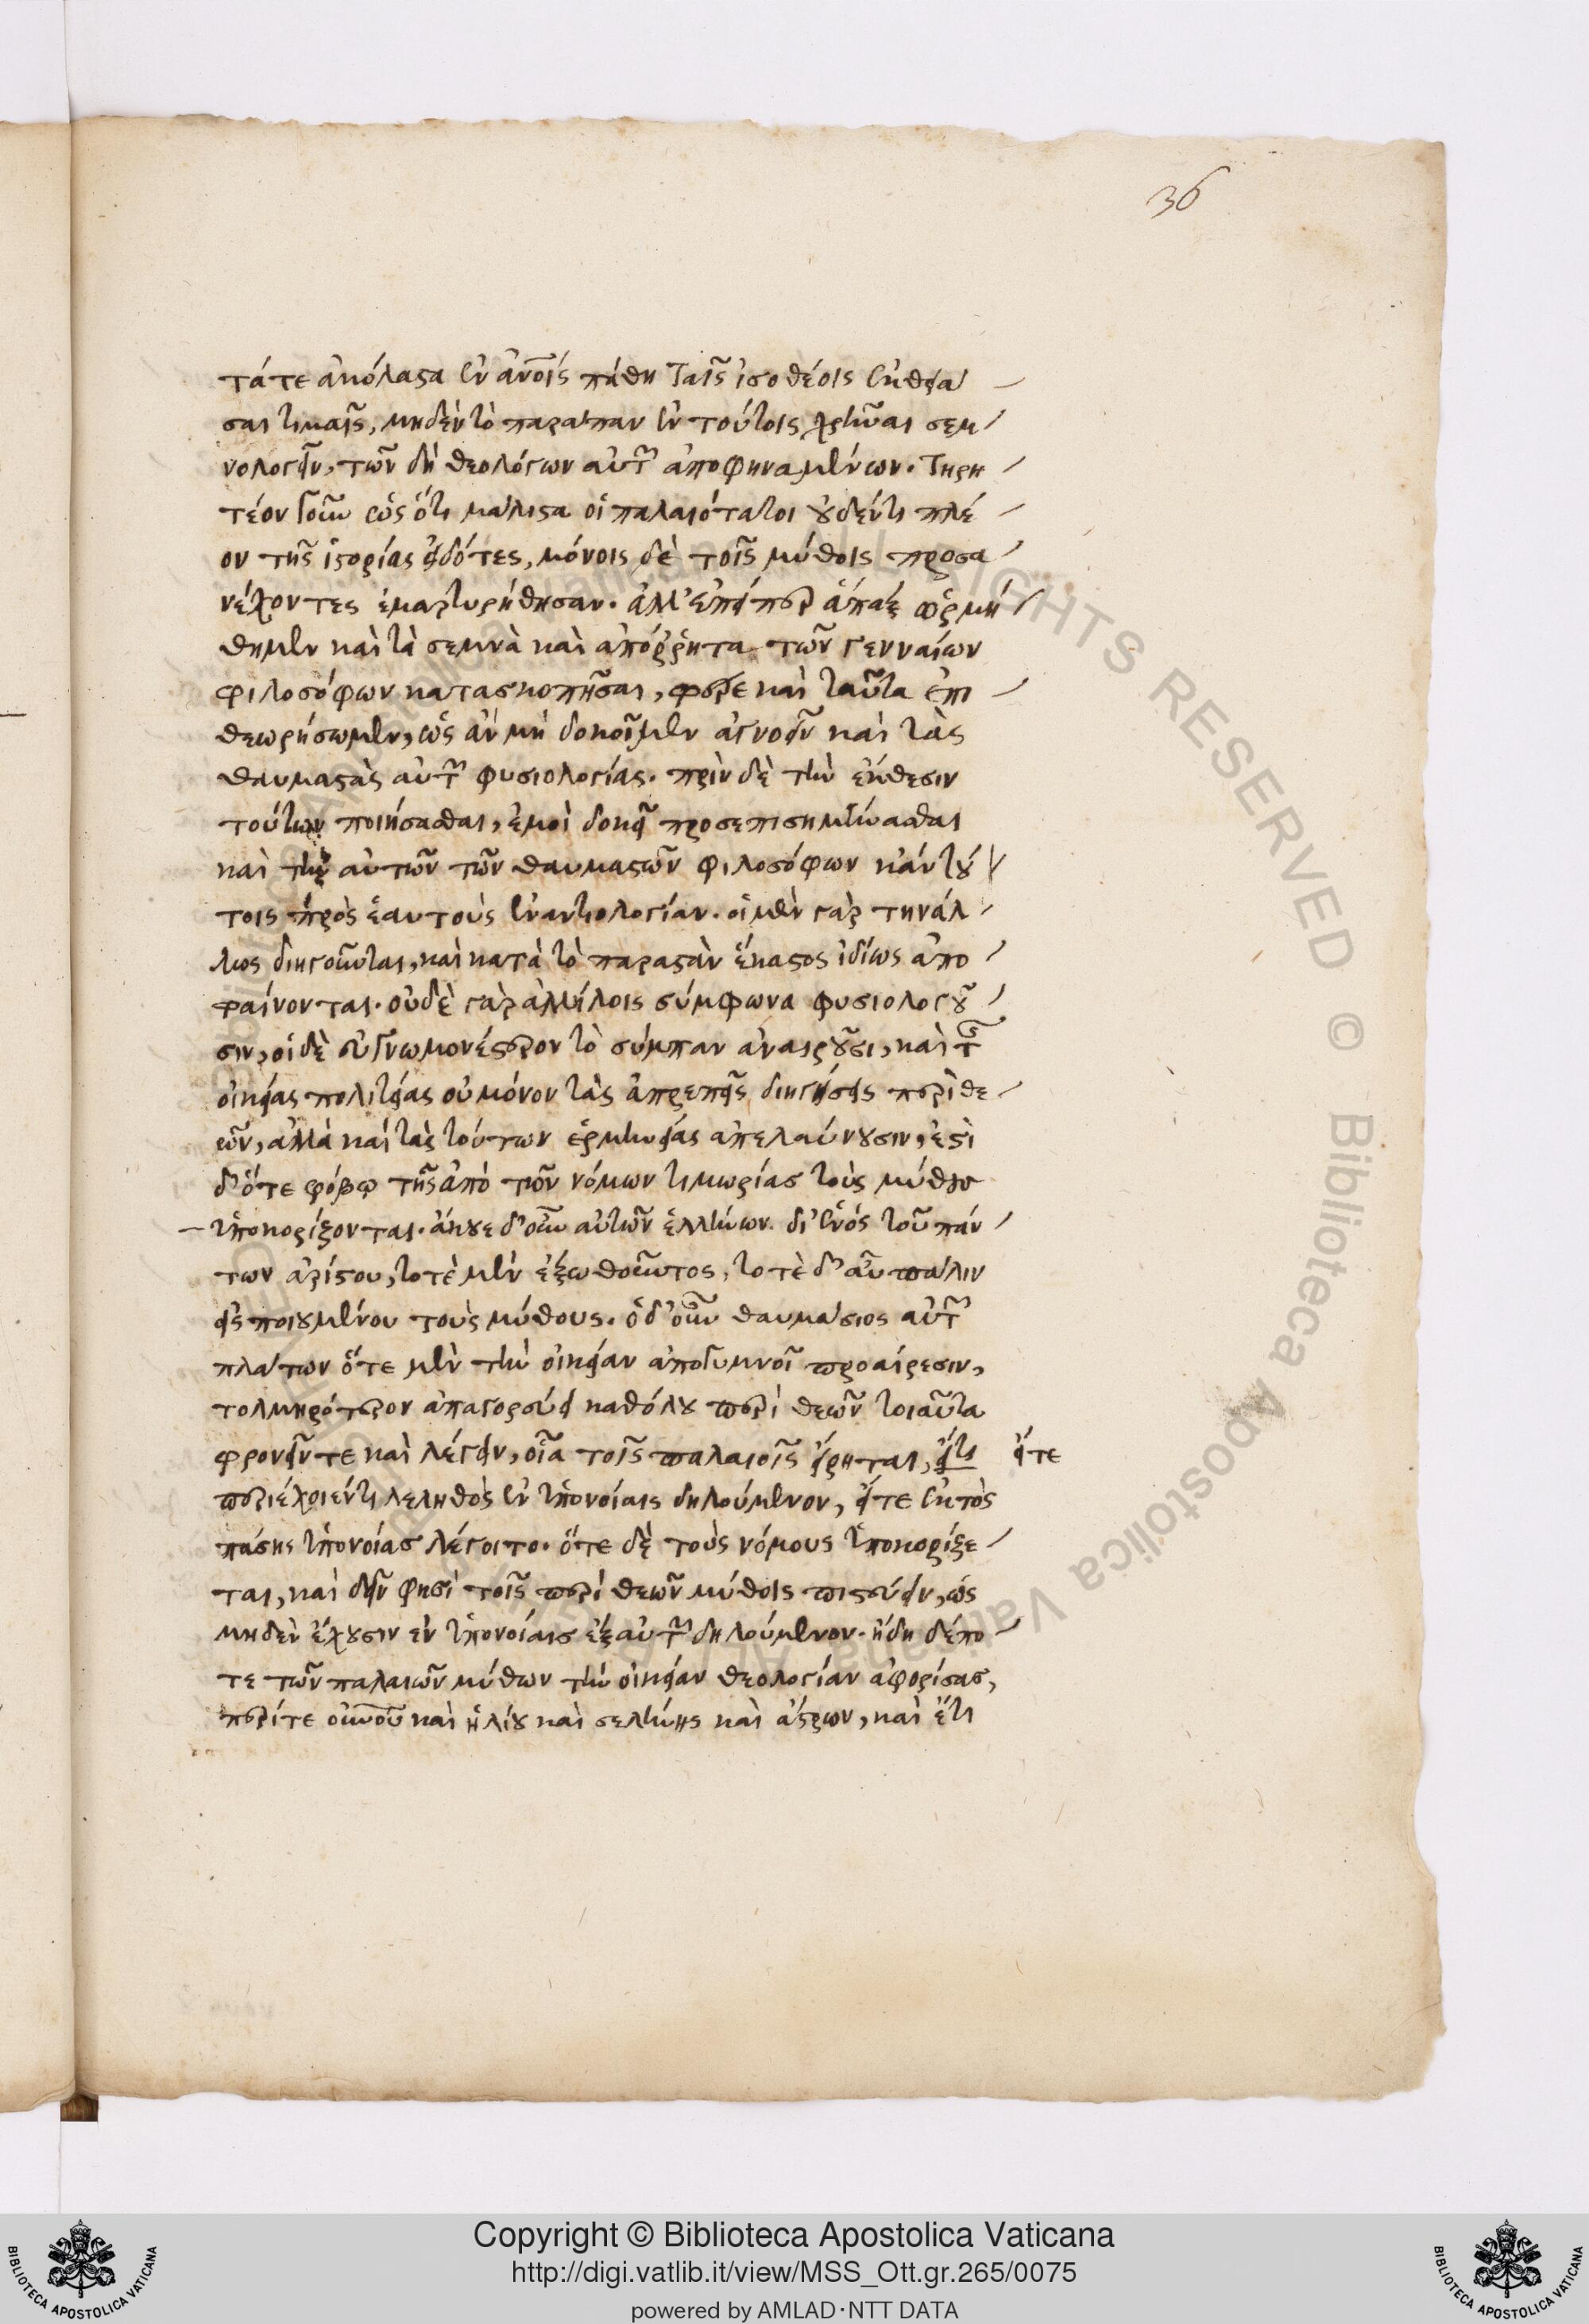 36
τά τε ἀκόλαστα ἐν ἀνοις πάθη ταῖς ἰσοθέοις ἐκθειά
σαι τιμαῖς, μηδὲν τὸ παράπαν ἐν τούτοις χρῆναι σεμ
νολογεῖν, τῶν δὴ θεολόγων αὐτῶν ἀποφηναμένων. τηρη
τέον γοῦν ὡς ὅτι μάλιστα οἱ παλαιότατοι οὐδέν τι πλέ
ον τῆς ἱστορίας εἰδότες, μόνοις δὲ τοῖς μύθοις προσα
νέχοντες ἐμαρτυρήθησαν. ἀλλ' ἐπείπερ ἅπαξ ὡρμή
θημεν καὶ τὰ σεμνὰ καὶ ἀπόρρητα τῶν γενναίων
φιλοσόφων κατασκοπῆσαι, φέρε καὶ ταῦτα ἐπι
θεωρήσωμεν, ὡς ἂν μὴ δοκοῖμεν ἀγνοεῖν καὶ τὰς
θαυμαστὰς αὐτῶν φυσιολογίας. πρὶν δὲ τὴν ἔκθεσιν
τούτων ποιήσασθαι, ἐμοὶ δοκεῖ προσεπισημήνασθαι
καὶ τὴν αὐτῶν τῶν θαυμαστῶν φιλοσόφων κἀν τού
τοις πρὸς ἑαυτοὺς ἐναντιολογίαν. οἱ μὲν γὰρ τηνάλ
λως διηγοῦνται, καὶ κατὰ τὸ παραστὰν ἕκαστος ἰδίως ἀπο
φαίνονται. οὐδὲ γὰρ ἀλλήλοις σύμφωνα φυσιολογοῦ
σιν, οἱ δὲ εὐγνωμονέστερον τὸ σύμπαν ἀναιροῦσι, καὶ τῆς
οἰκείας πολιτείας οὐ μόνον τὰς ἀπρεπεῖς διηγήσεις περὶ θε
ῶν, ἀλλὰ καὶ τὰς τούτων ἑρμηνείας ἀπελαύνουσιν, ἔστι
δ' ὅτε φόβῳ τῆς ἀπὸ τῶν νόμων τιμωρίας τοὺς μύθους
ὑποκορίζονται. ἄκουε δ' οὖν αὐτῶν ἑλλήνων. δι' ἑνός τοῦ πάν
των ἀρίστου, τοτὲ μὲν ἐξωθοῦντος, τοτὲ δ' αὖ πάλιν
εἰσποιουμένου τοὺς μύθους. ὁ δ' οὖν θαυμάσιος αὐτῶν
πλάτων ὅτε μὲν τὴν οἰκείαν ἀπογυμνοῖ προαίρεσιν,
τολμηρότερον ἀπαγορεύει καθόλου περὶ θεῶν τοιαῦτα
φρονεῖν τε καὶ λέγειν, οἷα τοῖς παλαιοῖς εἴρηται, εἴτι εἴτε
περιέχοιέν τι λεληθὸς ἐν ὑπονοίαις δηλούμενον, εἴτε ἐκτὸς
πάσης ὑπονοίας λέγοιτο. ὅτε δὲ τοὺς νόμους ὑποκορίζε
ται, καὶ δεῖν φησὶ τοῖς περὶ θεῶν μύθοις πιστεύειν, ὡς
μηδὲν ἔχουσιν ἐν ὑπονοίαις ἐξ αὐτῶν δηλούμενον. ἤδη δέ πο
τε τῶν παλαιῶν μύθων τὴν οἰκείαν θεολογίαν ἀφορίσας,
περί τε οὐνοῦ καὶ ἡλίου καὶ σελήνης καὶ ἄστρων, καὶ ἔτι
ALL RIGHTS RESERVED © Biblioteca Apostolica Vaticana
Copyright © Biblioteca Apostolica Vaticana
http://digi.vatlib.it/view/MSS_Ott.gr.265/0075
powered by AMLAD·NTT DATA
BIBLIOTECA APOSTOLICA VATICANA
BIBLIOTECA APOSTOLICA VATICANA